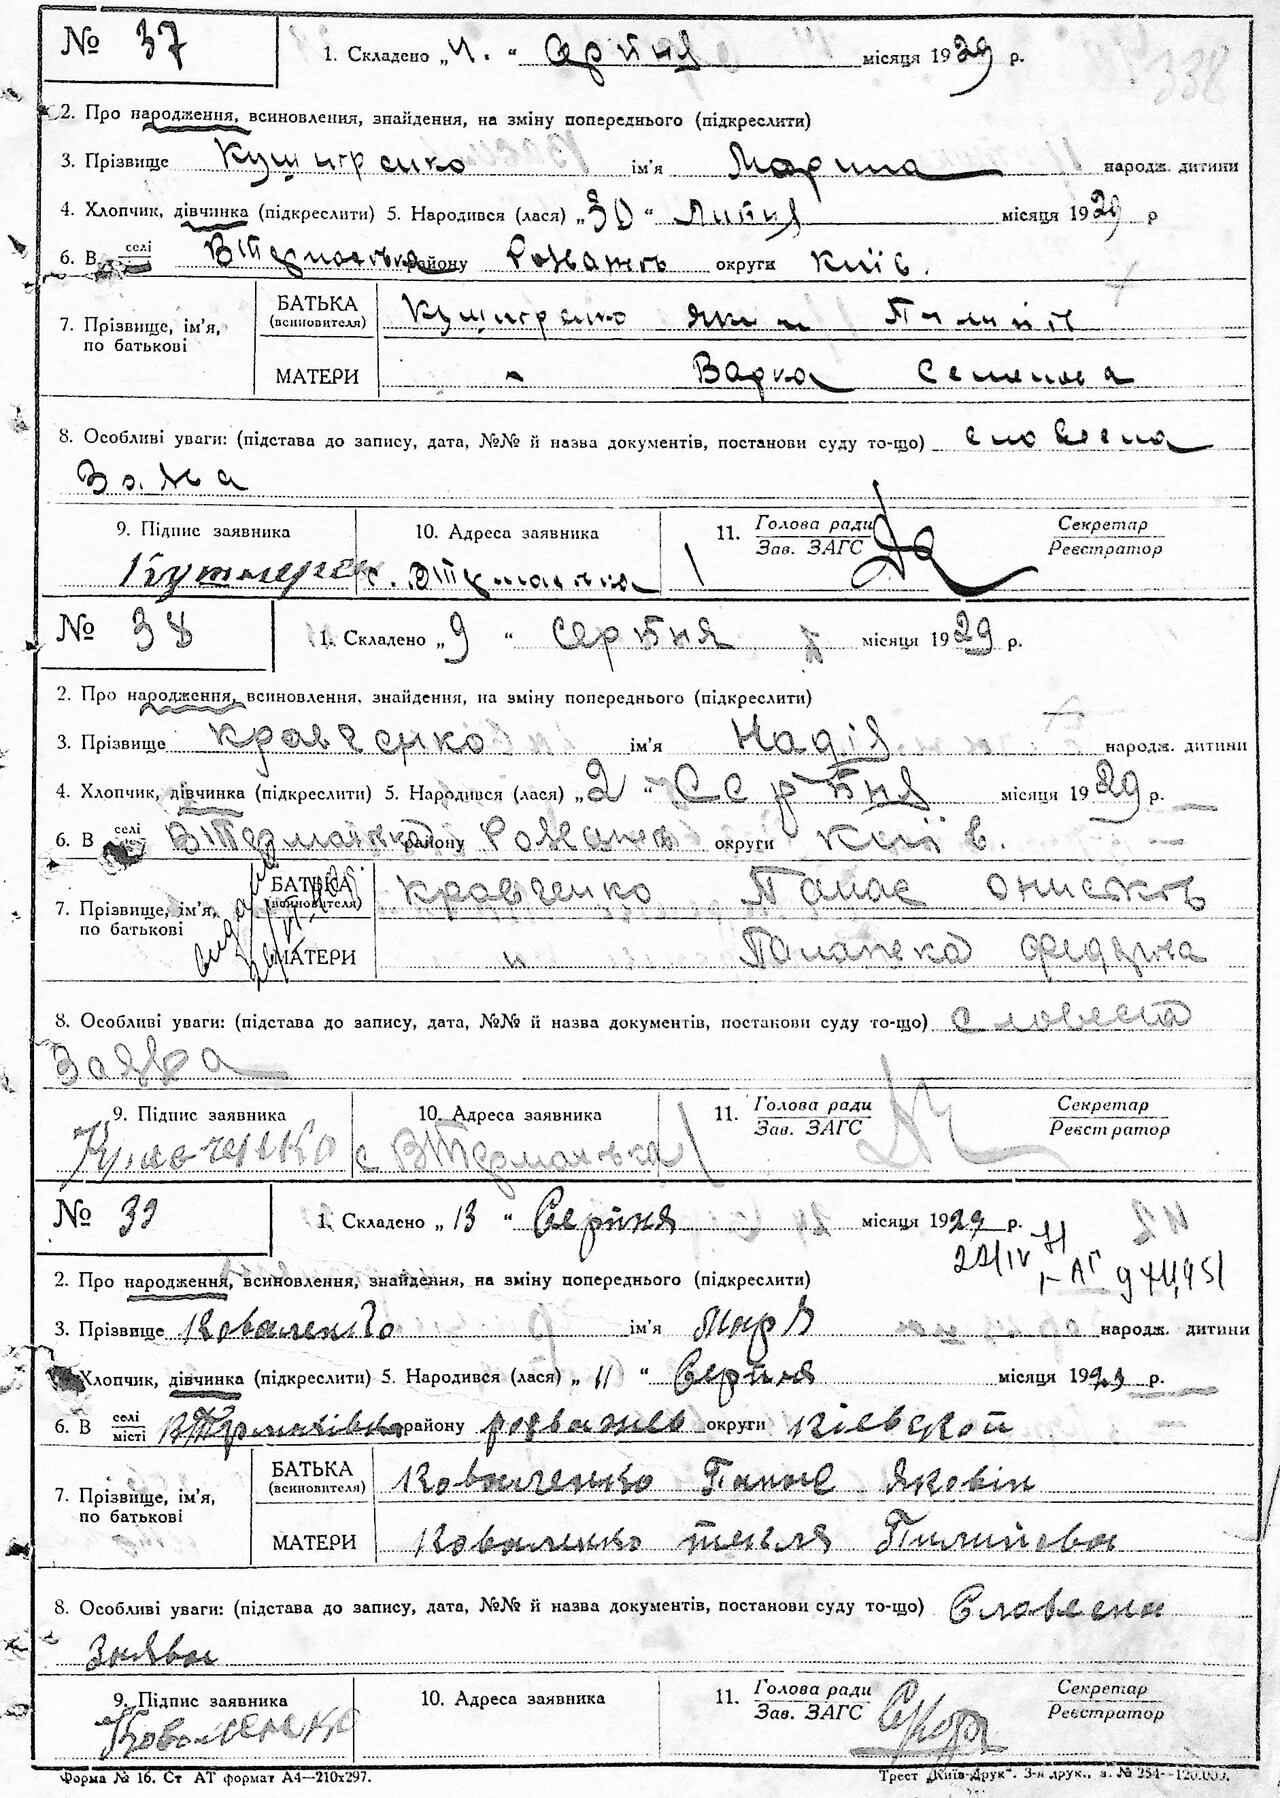 № 37
1. Складено „4." Серпня місяця 1929 р.
338
2. Про народження, всиновлення, знайдення, на зміну попереднього (підкреслити)
3. Прізвище ім'я Марина народж. дитини
4. Хлопчик, дівчинка (підкреслити) 5. Народився (лася) „30" Липня місяця 1929 р
6. В селі району Розважів округи Київ.
7. Прізвище, ім'я, по батькові
БАТЬКА (всиновителя) Яким Пилипів
МАТЕРИ " Варка Семенова
8. Особливі уваги: (підстава до запису, дата, №№ й назва документів, постанови суду то-що) словесна
Заява
9. Підпис заявника 10. Адреса заявника 11. Голова ради Секретар
Зав. ЗАГС Реєстратор
№ 38
1. Складено „9" Серпня місяця 1929 р.
2. Про народження, всиновлення, знайдення, на зміну попереднього (підкреслити)
3. Прізвище Кравченко ім'я Надія народж. дитини
4. Хлопчик, дівчинка (підкреслити) 5. Народився (лася) „2" Серпня місяця 1929 р.
6. В селі ВТермахівка району Розважів округи Київ.
7. Прізвище, ім'я, по батькові
БАТЬКА (всиновителя) Кравченко Панас Ониськів
МАТЕРИ " Палажка Федорова
8. Особливі уваги: (підстава до запису, дата, №№ й назва документів, постанови суду то-що) словесна
Заява
9. Підпис заявника 10. Адреса заявника 11. Голова ради Секретар
Зав. ЗАГС Реєстратор
Кравченко с ВТермахівка
№ 39
1. Складено „13" Серпня місяця 1929 р.
2. Про народження, всиновлення, знайдення, на зміну попереднього (підкреслити)
3. Прізвище Коваленко ім'я Марія народж. дитини
Хлопчик, дівчинка (підкреслити) 5. Народився (лася) „11" Серпня місяця 1929 р.
6. В селі місті ВТермахівка району Розважев округи Кіевской
7. Прізвище, ім'я, по батькові
БАТЬКА (всиновителя) Коваленко Панас Яковін
МАТЕРИ Коваленко Текля Пилипова
8. Особливі уваги: (підстава до запису, дата, №№ й назва документів, постанови суду то-що) Словесна
Заява
9. Підпис заявника 10. Адреса заявника 11. Голова ради Секретар
Зав. ЗАГС Реєстратор
Коваленко
Форма № 16. Ст АТ формат А4—210х297. Трест „Київ-Друк". 3-я друк., з. № 254—120.000.